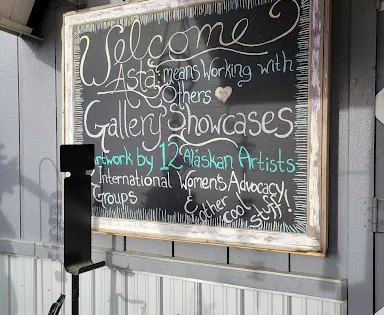 Welcome
Asta: means Working with
Others
Gallery Showcases
Artwork by 12 Alaskan Artists
International Women's Advocacy
Groups & other cool stuff!